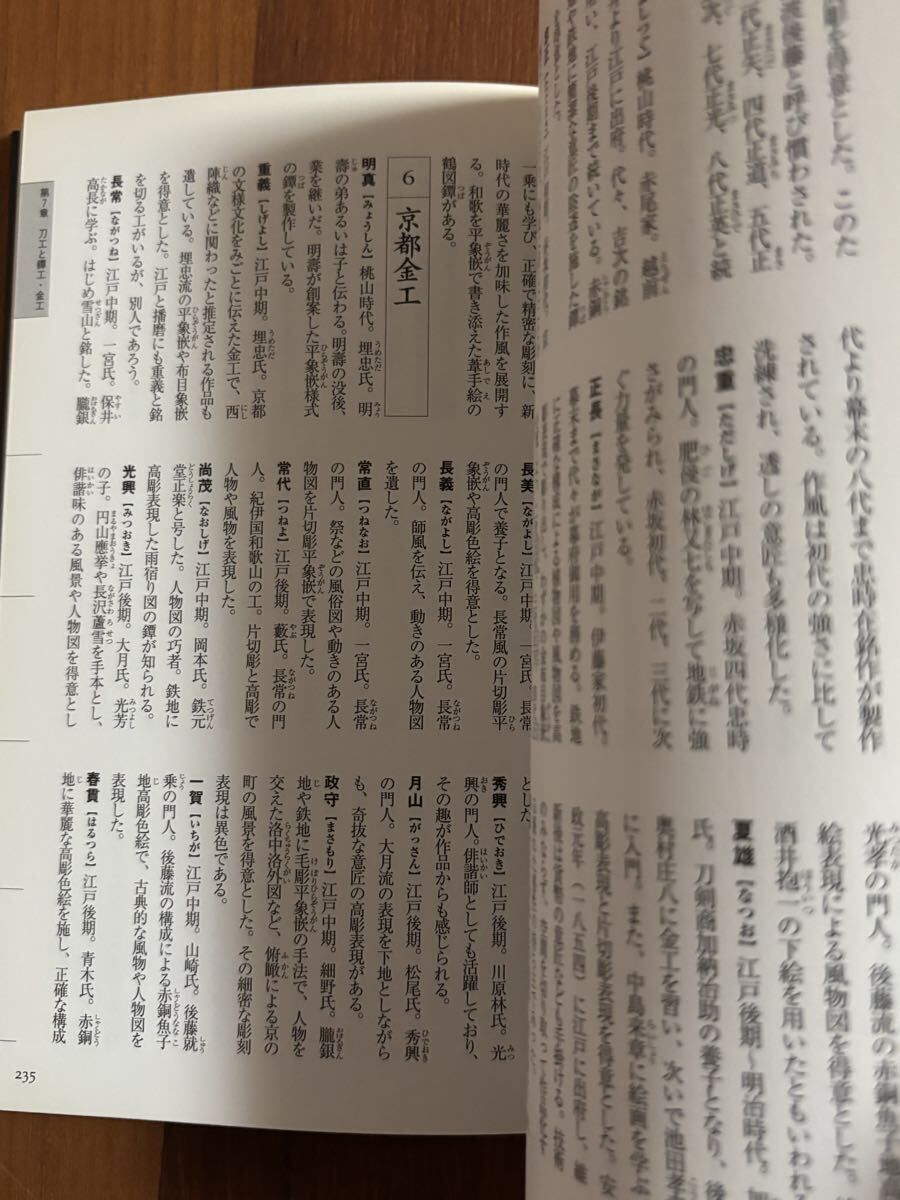 彫を得意とした。このた
後藤と呼び慣わされた。
四代正道、五代正
七代正光、八代正
桃山時代。赤尾家。越前
より江戸に出府。代々、吉次の銘
代より幕末の八代まで忠時作銘作が製作
されている。作風は初代の強さに比して
洗練され、透しの意匠も多様化した。
忠重【ただしげ】江戸中期。赤坂四代忠時
の門人。肥後の林又七を写して地鉄に強
さがみられ、赤坂初代、二代、三代に次
ぐ力量を発している。
正長【まさなが】江戸中期。伊藤家初代。
光孝の門人。後藤流の赤銅魚子地
絵表現による風物図を得意とした。
酒井抱一の下絵を用いたともいわれ
夏雄【なつお】江戸後期〜明治時代。
氏。刀剣商加納治助の養子となり、後
奥村庄八に金工を習い、次いで池田孝
に入門。また、中島来章に絵画を学ぶ
高彫表現と片切彫表現を得意とした。安
政元年(一八五四)に江戸に出府し、維
一乗にも学び、正確で精密な彫刻に、新
時代の華麗さを加味した作風を展開す
る。和歌を平象嵌で書き添えた葦手絵の
鶴図鐔がある。
6 京都金工
明真【みょうしん】桃山時代。埋忠氏。明
壽の弟あるいは子と伝わる。明壽の没後、
業を継いだ。明壽が創案した平象嵌様式
の鐔を製作している。
重義【しげよし】江戸中期。埋忠氏。京都
の文様文化をみごとに伝えた金工で、西
陣織などに関わったと推定される作品も
遺している。埋忠流の平象嵌や布目象嵌
を得意とした。江戸と播磨にも重義と銘
を切る工がいるが、別人であろう。
長常【ながつね】江戸中期。一宮氏。保井
高長に学ぶ。はじめ雪山と銘した。朧銀
長美【ながよし】江戸中期。一宮氏。長常
の門人で養子となる。長常風の片切彫平
象嵌や高彫色絵を得意とした。
長義【ながよし】江戸中期。一宮氏。長常
の門人。師風を伝え、動きのある人物図
を遺した。
常直【つねなお】江戸中期。一宮氏。長常
の門人。祭などの風俗図や動きのある人
物図を片切彫平象嵌で表現した。
常代【つねよ】江戸後期。藪氏。長常の門
人。紀伊国和歌山の工。片切彫と高彫で
人物や風物を表現した。
尚茂【なおしげ】江戸中期。岡本氏。鉄元
堂正楽と号した。人物図の巧者。鉄地に
高彫表現した雨宿り図の鐔が知られる。
光興【みつおき】江戸後期。大月氏。光芳
の子。円山應挙や長沢蘆雪を手本とし、
俳諧味のある風景や人物図を得意とし
とした。
秀興【ひでおき】江戸後期。川原林氏。光
興の門人。俳諧師としても活躍しており、
その趣が作品からも感じられる。
月山【がっさん】江戸後期。松尾氏。秀興
の門人。大月流の表現を下地としながら
も、奇抜な意匠の高彫表現がある。
政守【まさもり】江戸中期。細野氏。朧銀
地や鉄地に毛彫平象嵌の手法で、人物を
交えた洛中洛外図など、俯瞰による京の
町の風景を得意とした。その細密な彫刻
表現は異色である。
一賀【いちが】江戸中期。山崎氏。後藤就
乗の門人。後藤流の構成による赤銅魚子
地高彫色絵で、古典的な風物や人物図を
表現した。
春貫【はるつら】江戸後期。青木氏。赤銅
地に華麗な高彫色絵を施し、正確な構成
第7章 刀工と鐔工・金工
235